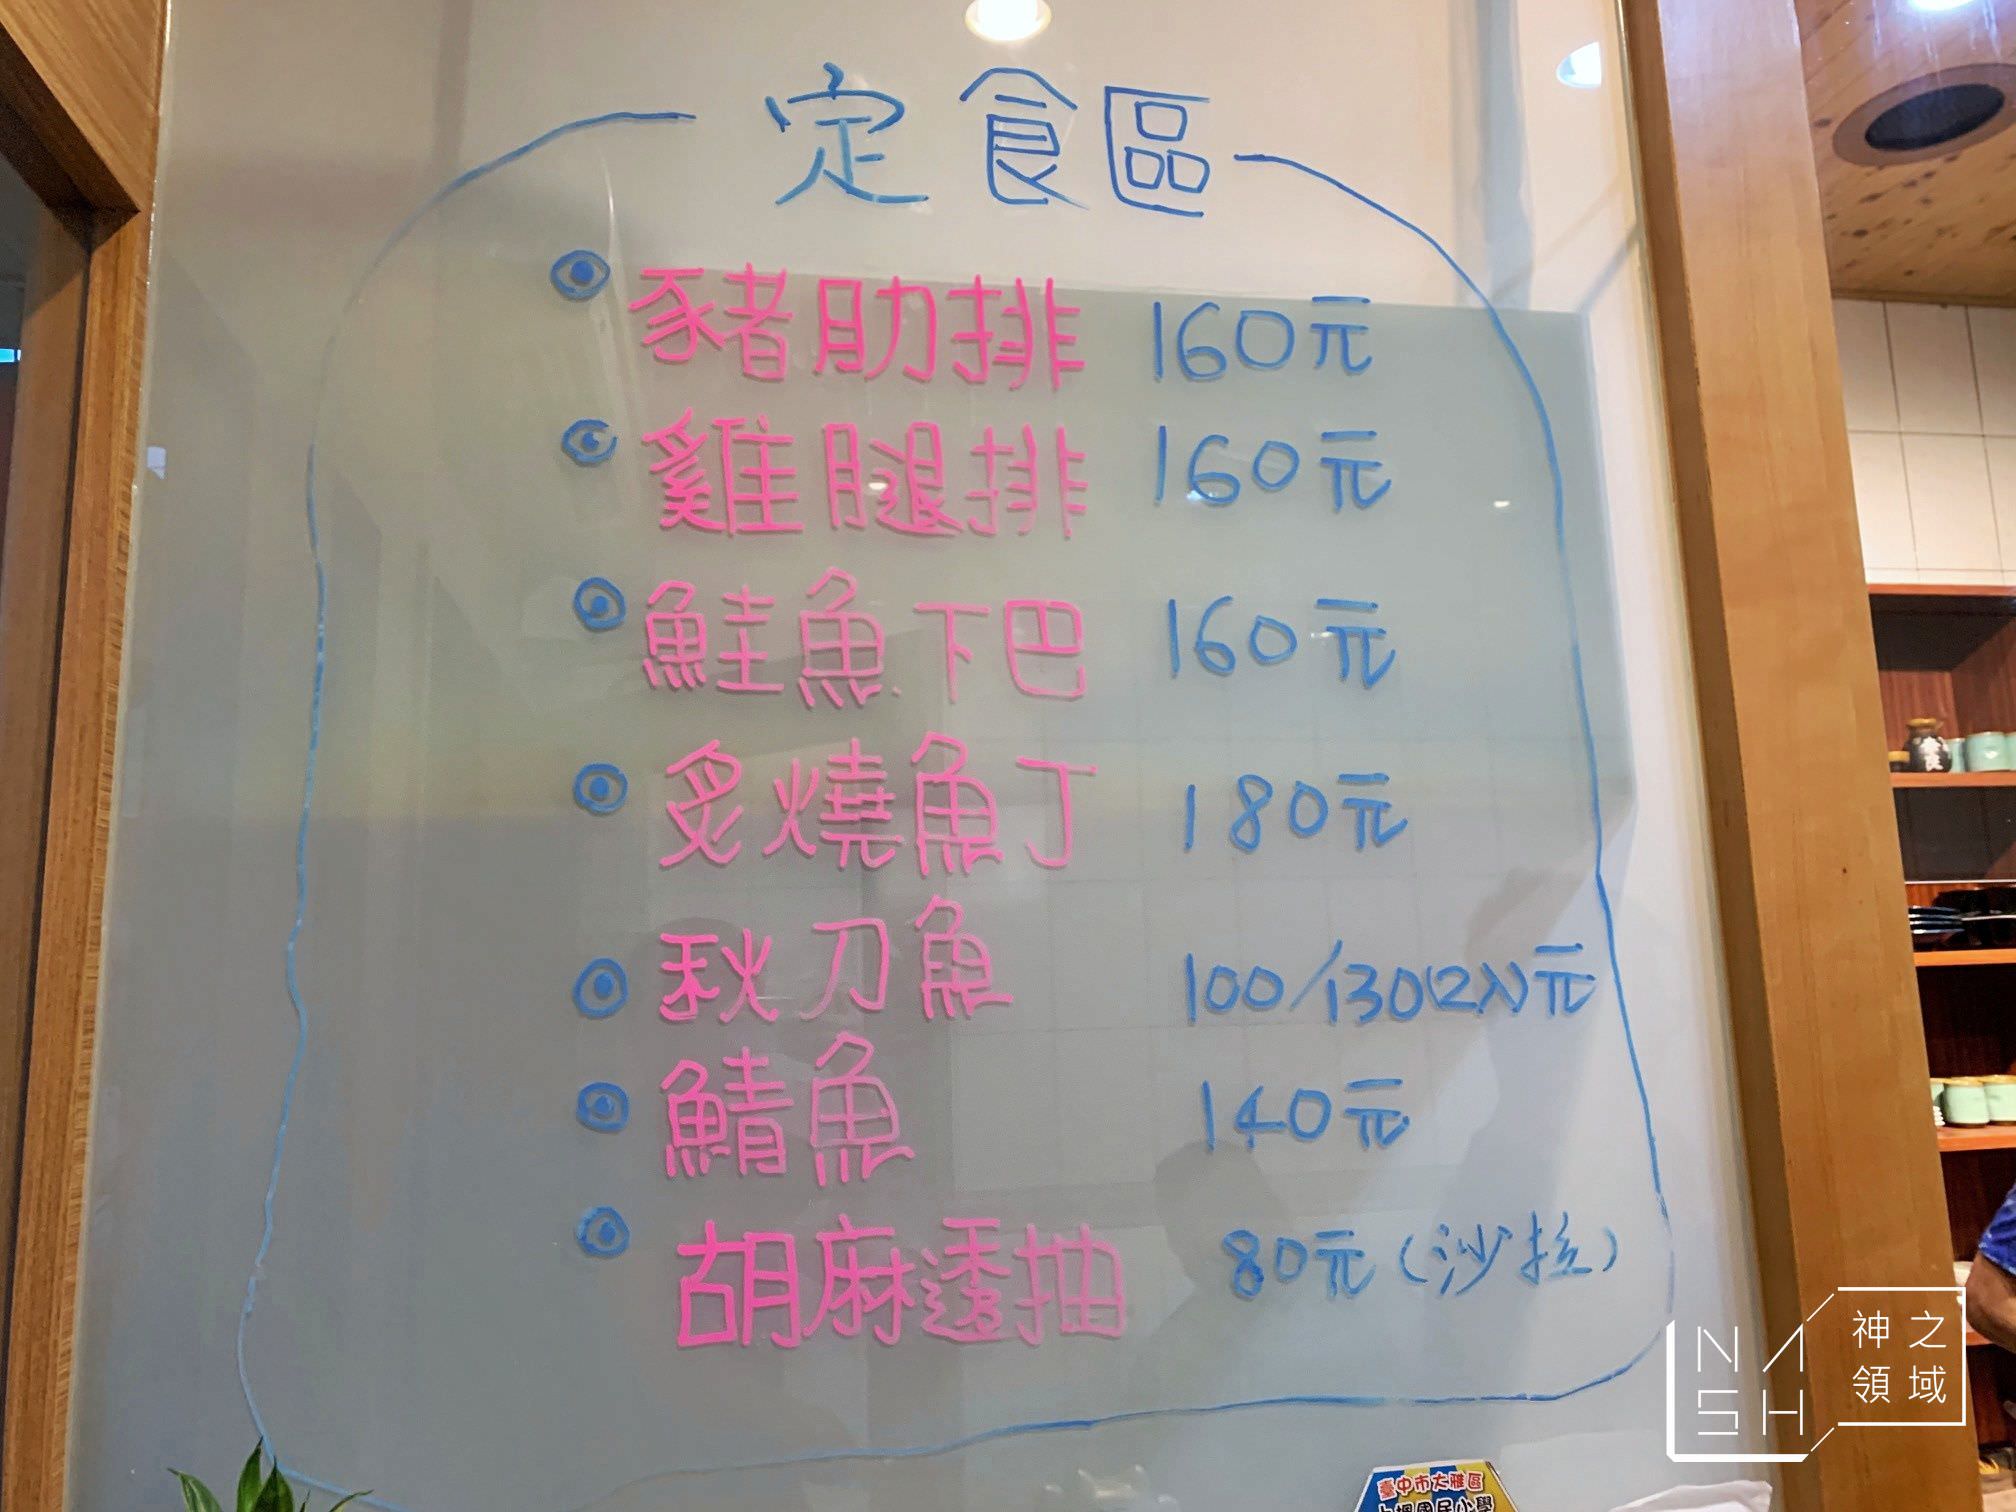 定食區
豬肋排 160元
雞腿排 160元
鮭魚下巴 160元
炙燒魚丁 180元
秋刀魚 100/130(2入)元
鯖魚 140元
胡麻透抽 80元(沙拉)
NASH
神之領域
臺中市大雅區
國民小學